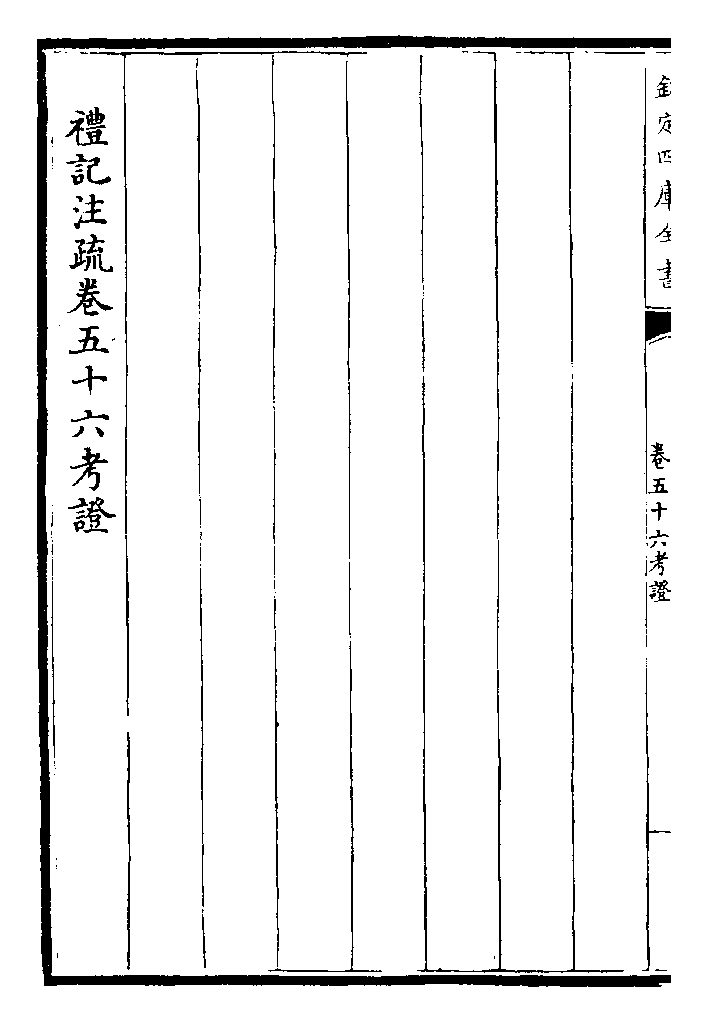 欽定四庫全書
卷五十六考證
禮記注疏卷五十六考證